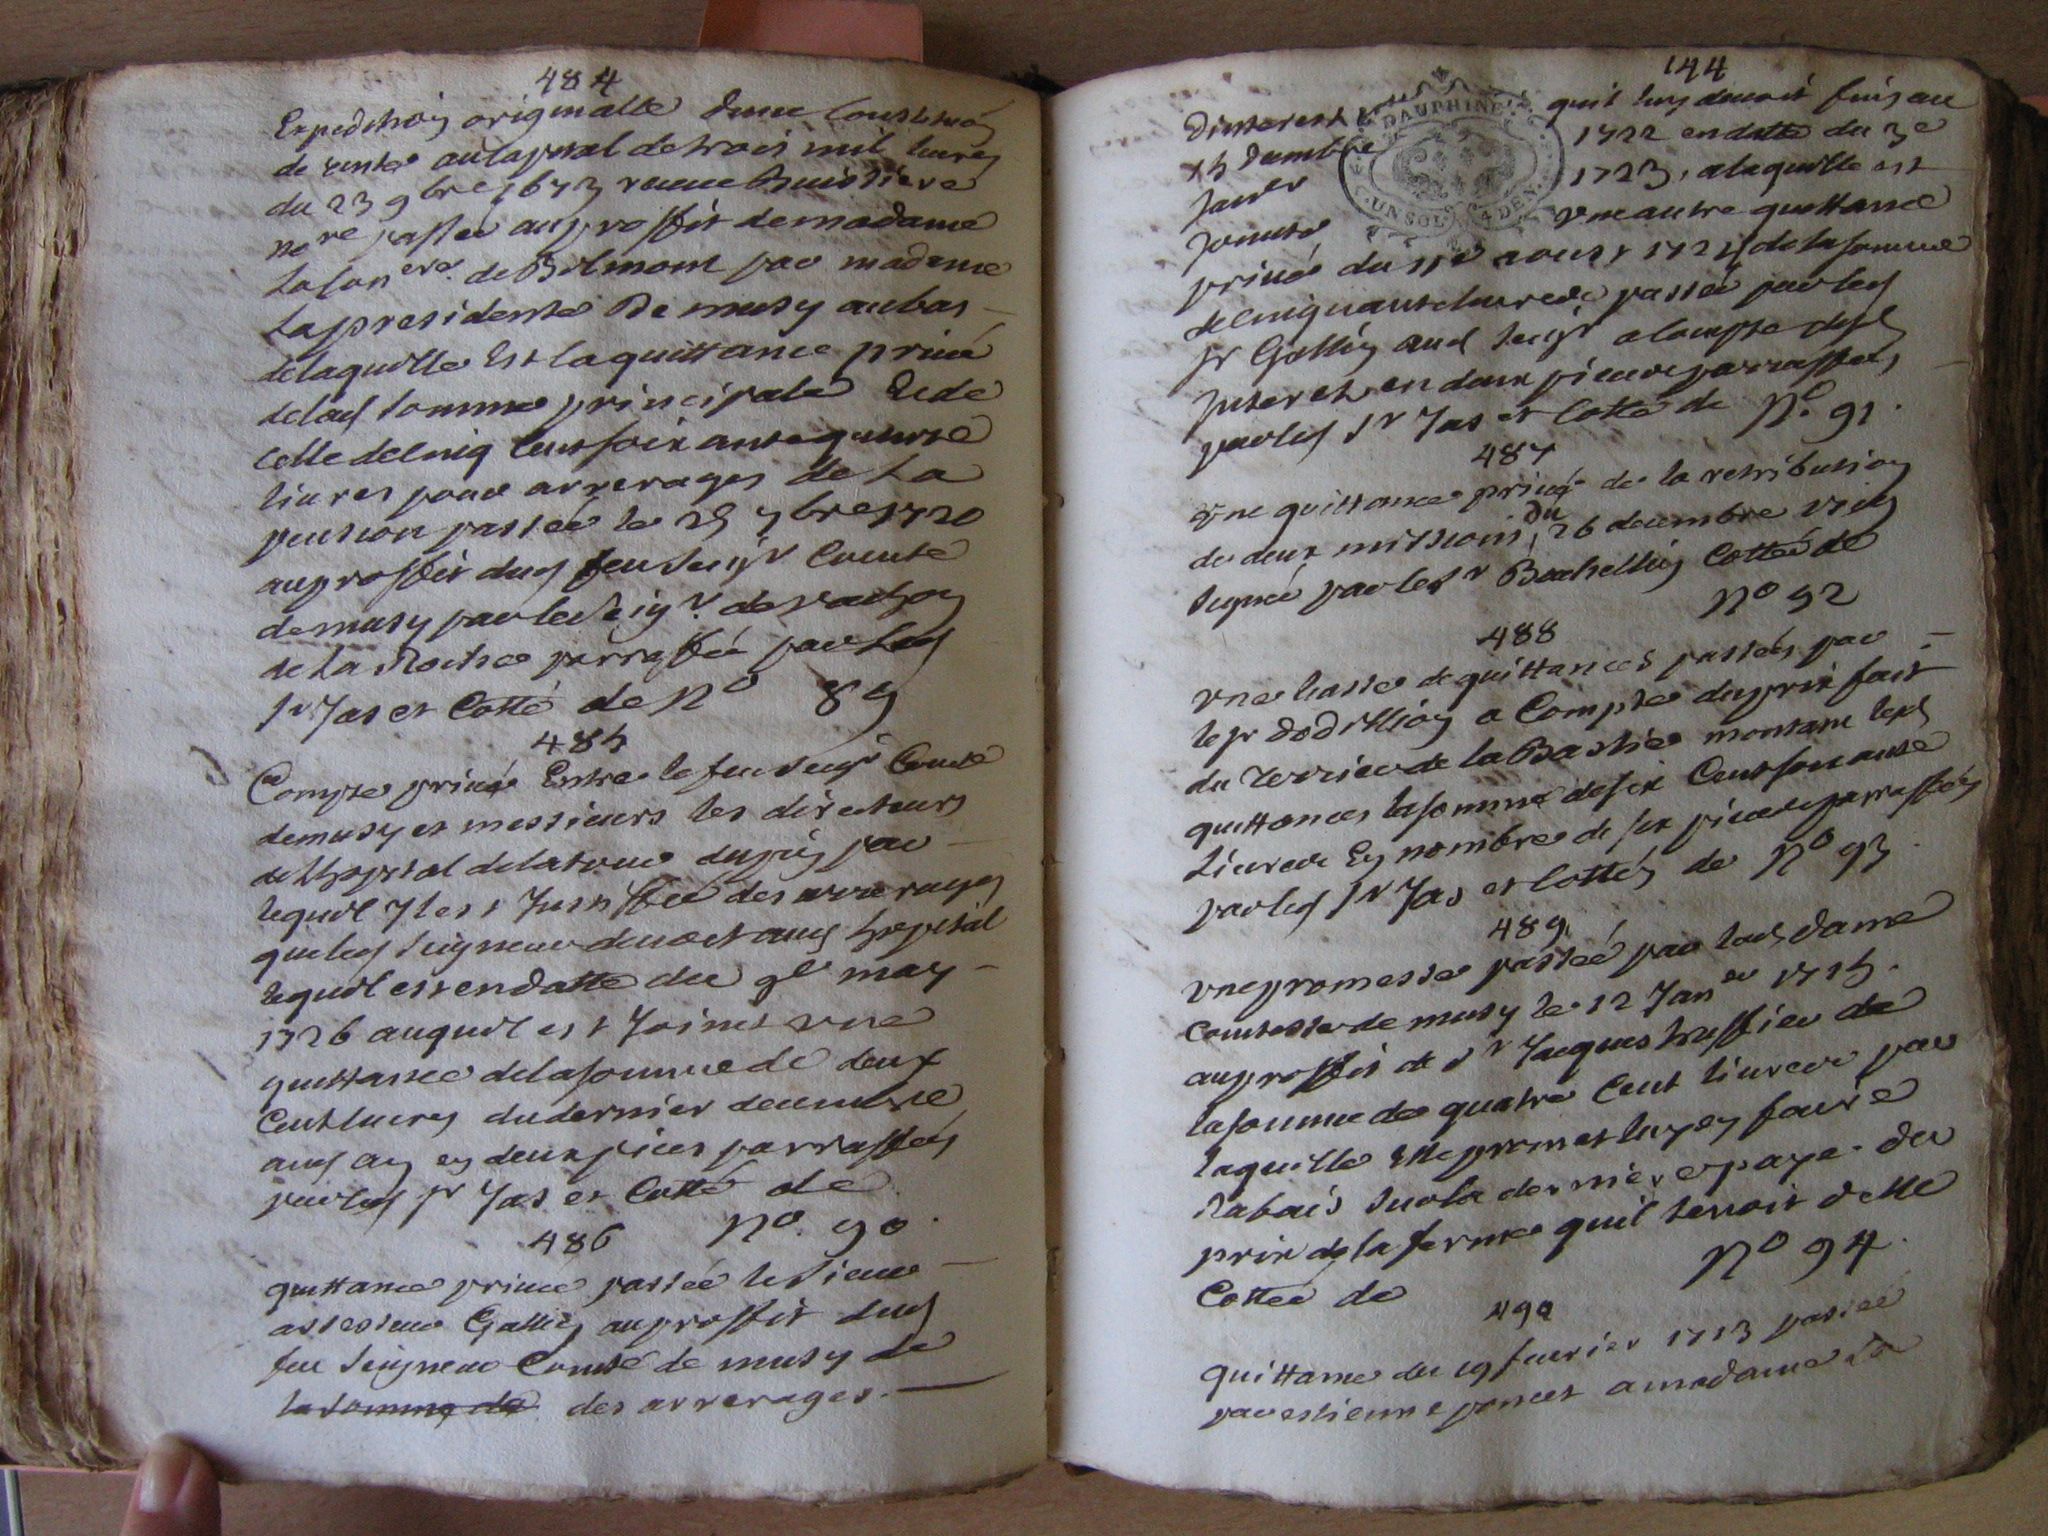 484
Expedition originalle dune Constitu͠on
de rente au capital de trois mil livres
du 23 9bre 1673 receue Buissiere
nore passée au proffit de madame
La Conere de Belmont par madame
La presidente De musy au bas
de laquelle Est la quittance privée
de lad somme principale Et de
celle de cinq Cent soixante quinze
livres pour arrerages de La
pension passée le 25 7bre 1720
au proffit dud feu Seigr Comte
de musy par le Seigr de vachon
de La Roche parraffée par Led
Sr Jas et Cotté de No 89
485
Compte privé Entre le feu Seigr Comte
de musy et messieurs les directeurs
de Lhopital de la tour du pin par
lequel Il est Justiffié des arrerages
que led Seigneur devoit aud hopital
lequel est en datte du 9e may
1726 auquel est Joinct une
quittance de la somme de deux
Cent livres du dernier decembre
aud an en deux pieces parraffées
par led Sr Jas et Cotté de
No. 90.
486
quittance privée passée le Sieur
assesseur Gallin au proffit dud
feu Seigneur Comte de musy de
la somme de des arrerages.
144
DAUPHINE
UN SOL 4 DEN
Dinterest quil luy devoit fins au
15 decembre 1722 en datte du 3e
Janer 1723, a laquelle est
Jointe une autre quittance
privée du 11e aoust 1724 de la somme
de cinquante livres passée par led
Sr Gallin aud Seigr a compte desd
Interets en deux pieces parraffées
par led Sr Jas et Cotté de No. 91.
487
Une quittance privée de la retribution
de deux missions, du 26 decembre
Signée par le Sr Cottée de
No 92
488
Une liasse de quittances passées par
le Sr dodillion a Compte du prix fait
du Terrier de la Bastie montant lesd
quittances la somme de six Cent soixante
Livres En nombre de six pieces parraffées
par led Sr Jas et Cottés de No 93.
489
Une promesse passée par lad dame
Comtesse de musy le 12 Janer 1715.
au proffit de Sr Jacques truffier de
la somme de quatre Cent livres par
laquelle Elle promet luy en faire
Rabais sur la derniere paye du
prix de la ferme quil tenoit delle
Cottée de No 94.
490
quittance du 19 fevrier 1713 passée
par estienne poncet a madame La